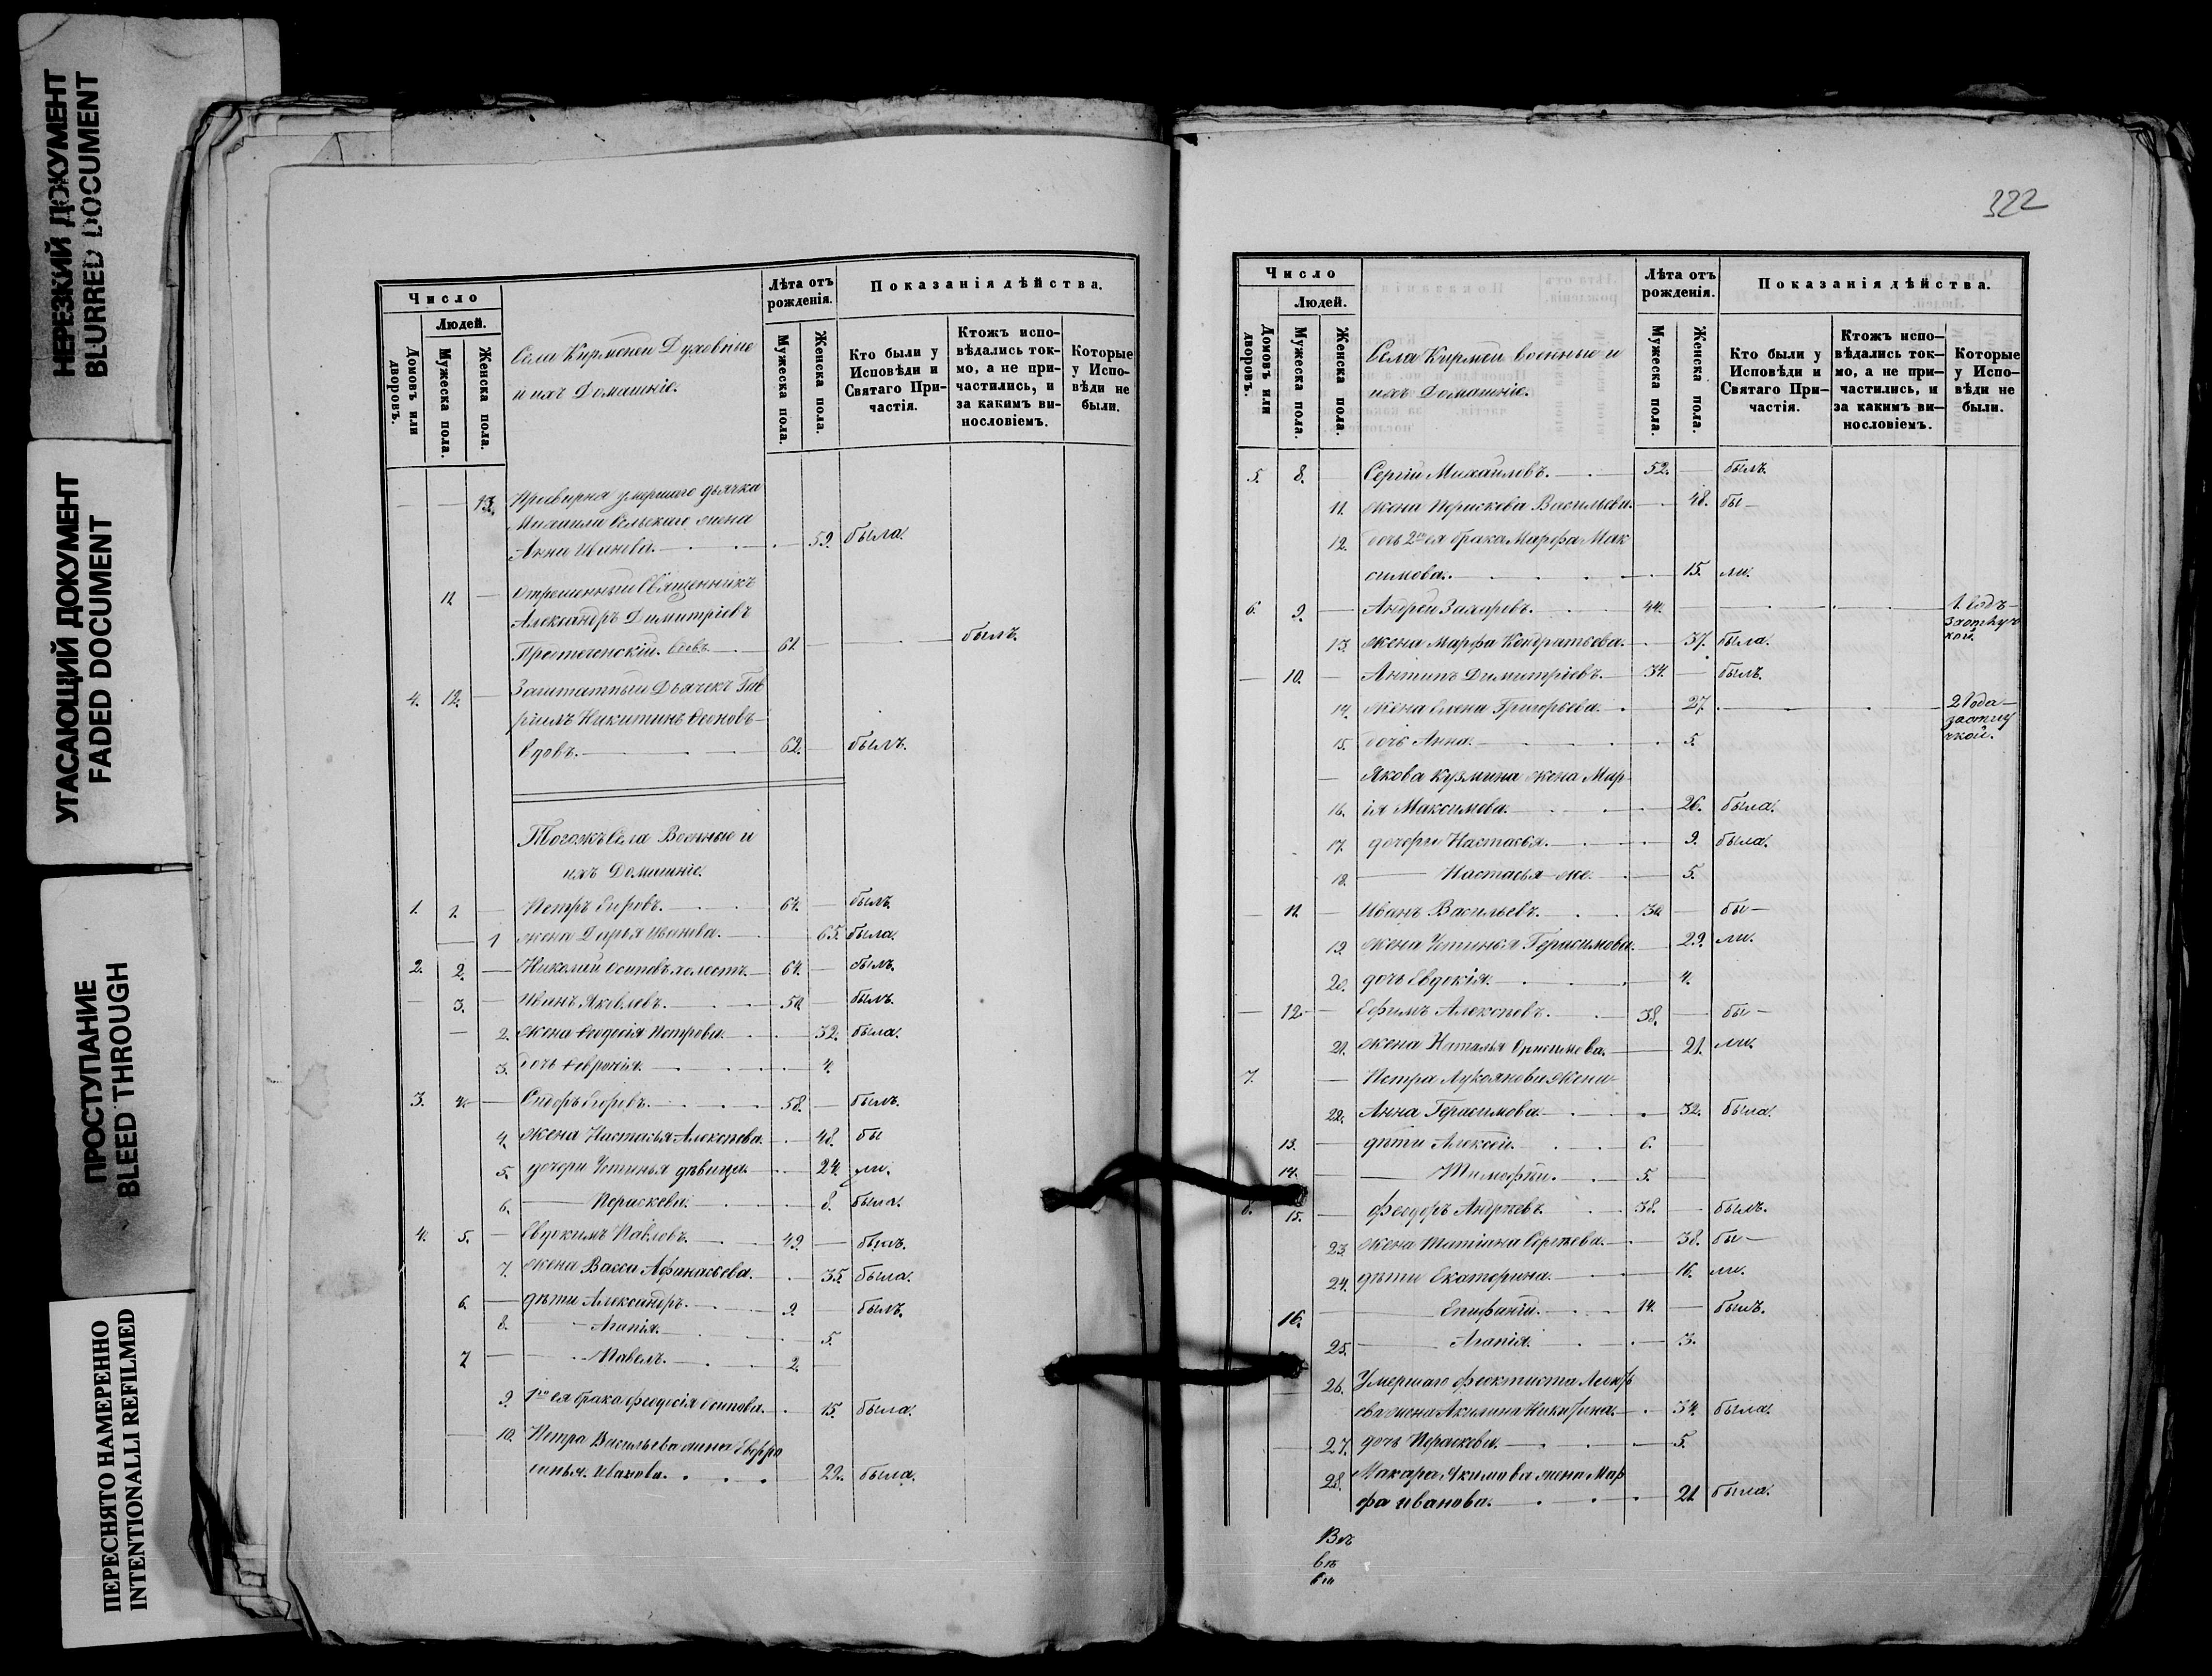 НЕРЕЗКИЙ ДОКУМЕНТ
BLURRED DOCUMENT
УГАСАЮЩИЙ ДОКУМЕНТ
FADED DOCUMENT
ПРОСТУПАНИЕ
BLEED THROUGH
ПЕРЕСНЯТО НАМЕРЕННО
INTENTIONALLI REFILMED
Число
Людей.
Домовъ или дворовъ.
Мужеска пола.
Женска пола.
Села Кирменей Духовные
и ихъ Домашніе.
Лѣта отъ
рожденія.
Мужеска пола.
Женска пола.
Показанія дѣйства.
Кто были у
Исповѣди и
Святаго При-
частія.
Ктожъ испо-
вѣдались ток-
мо, а не при-
частились, и
за какимъ ви-
нословіемъ.
Которые
у Испо-
вѣди не
были.
13. Просвирня умершаго дьячка
Михаила Сельскаго жена
Анна Иванова. 59. была.
11. Отрешенный Священникъ
Александръ Димитріевъ
Предтеченскій вдовъ 61. былъ.
4. 12. Заштатный Дьячекъ Гав
ріилъ Никитинъ
Вдовъ. 62. былъ.
Тогожъ Села Военные и
ихъ Домашніе.
1. 1. Петръ 64. былъ.
1 жена Дарья Иванова. 65. была.
2. 2. Николай Осиповъ холостъ. 64. былъ.
3. Иванъ Яковлевъ. 50. былъ.
2. жена Ѳеодосія Петрова. 32. была.
3. дочь Ѳевронія. 4.
3. 4. Сидоръ Егоровъ. 58. былъ.
4. жена Настасья Алексѣева. 48. бы
5. дочери Устинья дѣвица. 24. ли.
6. Параскева. 8. была.
4. 5. Евдокимъ Павловъ. 49. былъ.
7. жена Васса Афанасьева. 35. была.
6. дѣти Александръ. 9. былъ.
8. Агапія. 5.
7 Павелъ. 2.
9. 1го ея брака Феодосія Осипова. 15. была.
10. Петра Васильева жена Евфро
синья Иванова. 22. была.
322
Число
Людей.
Домовъ или дворовъ.
Мужеска пола.
Женска пола.
Села Кирмени военные и
ихъ Домашніе.
Лѣта отъ
рожденія.
Мужеска пола.
Женска пола.
Показанія дѣйства.
Кто были у
Исповѣди и
Святаго При-
частія.
Ктожъ испо-
вѣдались ток-
мо, а не при-
частились, и
за какимъ ви-
нословіемъ.
Которые
у Испо-
вѣди не
были.
5. 8. Сергій Михайловъ. 52. былъ.
11. жена Параскева Васильева. 48. бы
12. дочь 2го ея брака Марфа Мак
симова. 15. ли.
6. 9. Андрей Захаровъ. 44. 1. годъ
за отлуч
кой.
13. жена Марфа Кондратьева. 37. была.
10. Антипъ Димитріевъ. 34. былъ.
14. жена Елена Григорьева. 27. 2 года
за отлу
чкой.
15. дочь Анна. 5.
Якова Кузмина жена Мар
16. ія Максимова. 26. была.
17. дочери Настасья. 9. была.
18. Настасья же. 5.
11. Иванъ Васильевъ. 30. бы
19. жена Устинья Герасимова. 29. ли.
20. дочь Евдокія. 4.
12. Ефимъ Алексѣевъ. 38. бы
21. жена Наталья Онисимова. 21. ли.
7. Петра Лукоянова жена
22. Анна Герасимова 32. была.
13. дѣти Алексѣй. 6.
14. Тимофѣй. 5.
8. 15. Феодоръ Андреевъ. 38. былъ.
23. жена Татіана Сергѣева. 38. бы
24. дѣти Екатерина. 16. ли.
16. Епифаній. 14. былъ.
25. Агапія. 3.
26. Умершаго Феоктиста
жена Акилина Никитина 34. была.
27. дочь Параскева. 5.
28. Макара Якимова жена Мар
фа Иванова. 21. была.